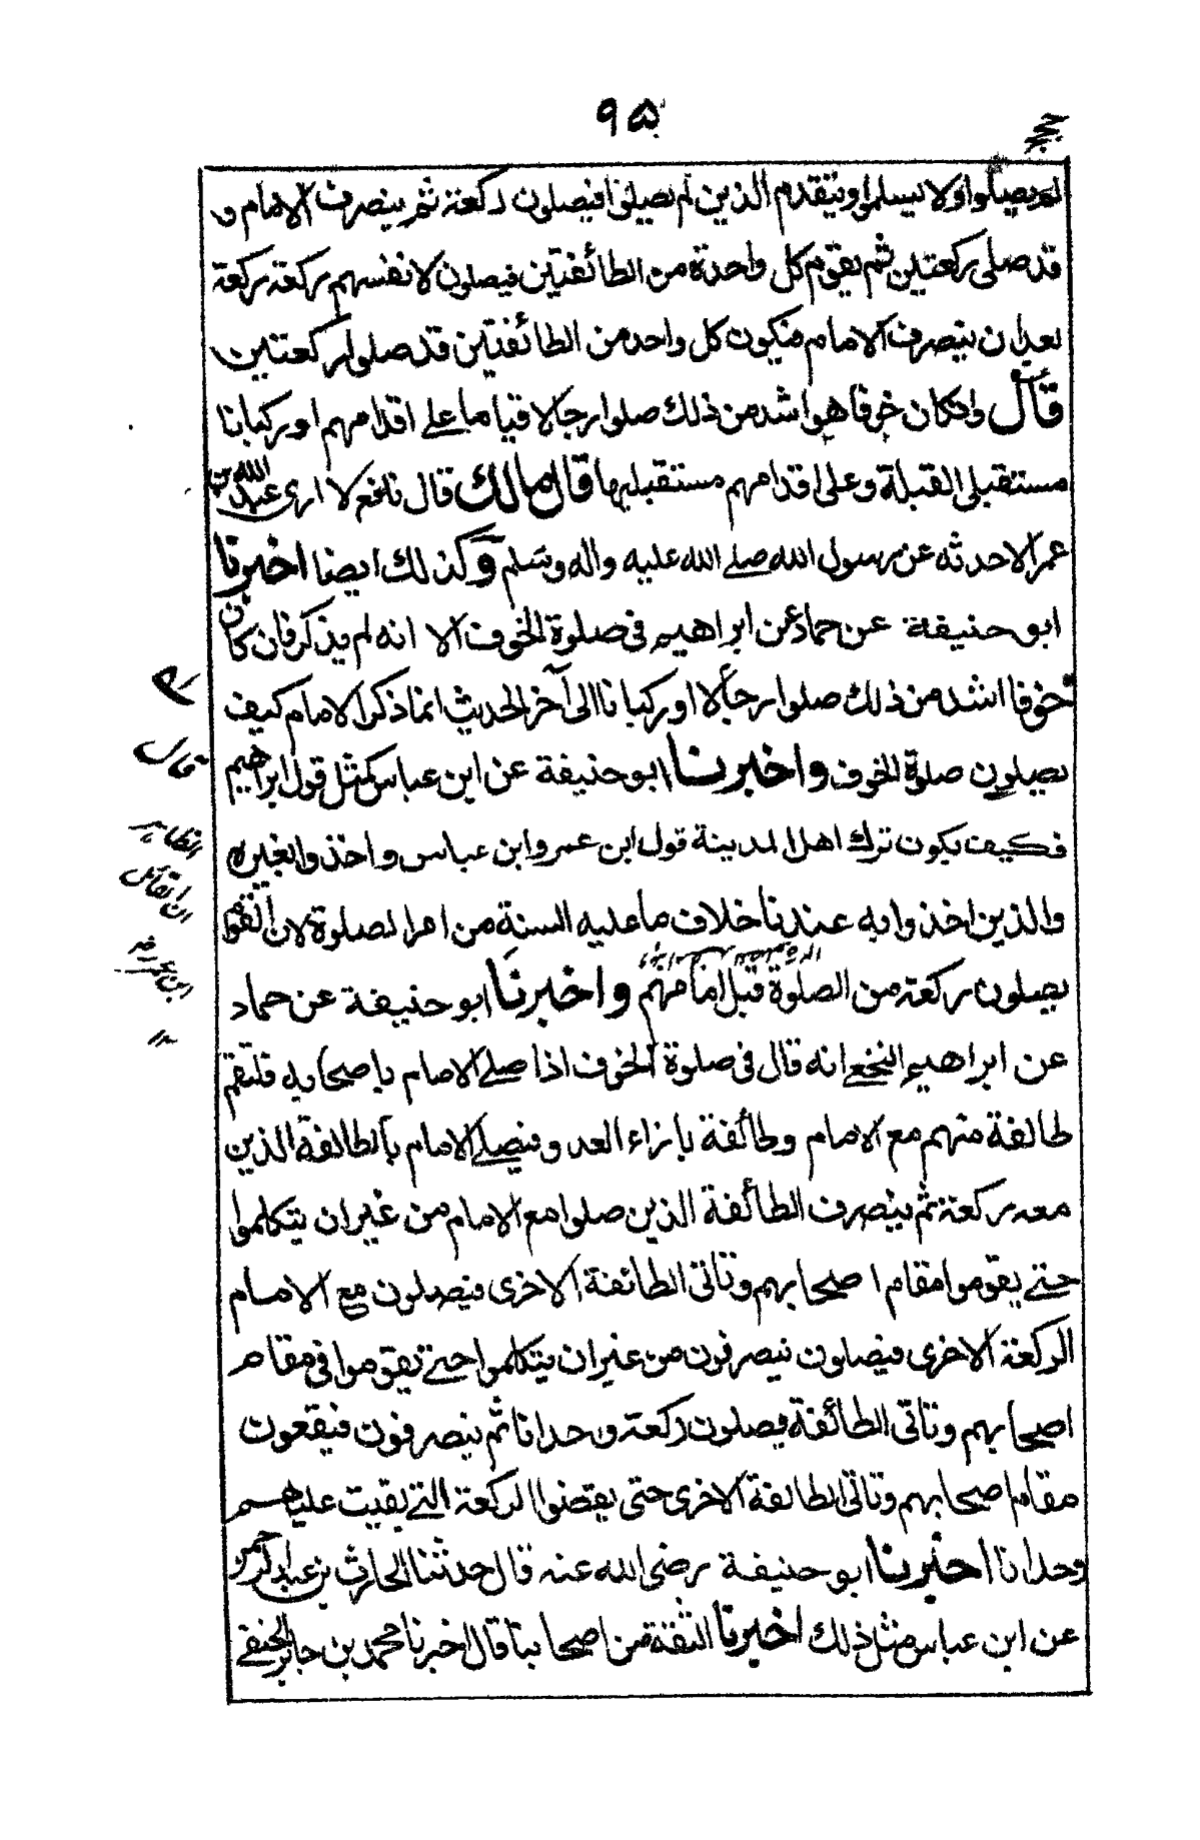 ٩٥
لم يصلوا ولا يسلموا ويتقدم الذين لم يصلوا فيصلون ركعة ثم ينصرف الامام و
قد صلى ركعتين ثم يقوم كل واحدة من الطائفتين فيصلون لانفسهم ركعة ركعة
بعد ان ينصرف الامام فيكون كل واحد من الطائفتين قد صلوا ركعتين
قال وان كان خوفا هو اشد من ذلك صلوا رجالا قياما على اقدامهم او ركبانا
مستقبلى القبلة وعلى اقدامهم مستقبليها قال مالك قال نافع لا ارى عبد الله بن
عمر الا حدثه عن رسول الله صلے الله عليه واله وسلم وكذلك ايضا اخبرنا
ابو حنيفة عن حماد عن ابراهيم فى صلوة الخوف الا انه لم يذكر فان كان
خوفا اشد من ذلك صلوا رجالا او ركبانا الى آخر الحديث انما ذكر الامام كيف
يصلون صلوة الخوف واخبرنا ابو حنيفة عن ابن عباس كمثل قول ابراهيم
فكيف يكون ترك اهل المدينة قول ابن عمر وابن عباس واخذوا بغيره
والذين اخذوا به عندنا خلاف ما عليه السنة من امر الصلوة لان القوم
يصلون ركعة من الصلوة قبل امامهم واخبرنا ابو حنيفة عن حماد
عن ابراهيم النخعے انه قال فى صلوة الخوف اذا صلے الامام باصحابه فلتقم
طائفة منهم مع الامام وطائفة بازاء العدو فيصلے الامام بالطائفة الذين
معه ركعة ثم ينصرف الطائفة الذين صلوا مع الامام من غير ان يتكلموا
حتے يقوموا مقام اصحابهم وتاتى الطائفة الاخرى فيصلون مع الامام
الركعة الاخرى فيصلون ينصرفون من غير ان يتكلموا حتے يقوموا فى مقام
اصحابهم وتاتى الطائفة فيصلون ركعة وحدانا ثم ينصرفون فيقعون
مقام اصحابهم وتاتى الطائفة الاخرى حتى يقضوا الركعة التے بقيت عليهم
وحدانا اخبرنا ابو حنيفة رضى الله عنه قال حدثنا الحارث بن عبد الرحمن
عن ابن عباس مثل ذلك اخبرنا الثقة من اصحابنا قال اخبرنا محمد بن جابر الحنفے
قال
الظاهر
ان القائل
ابن عمر رضه
١٢